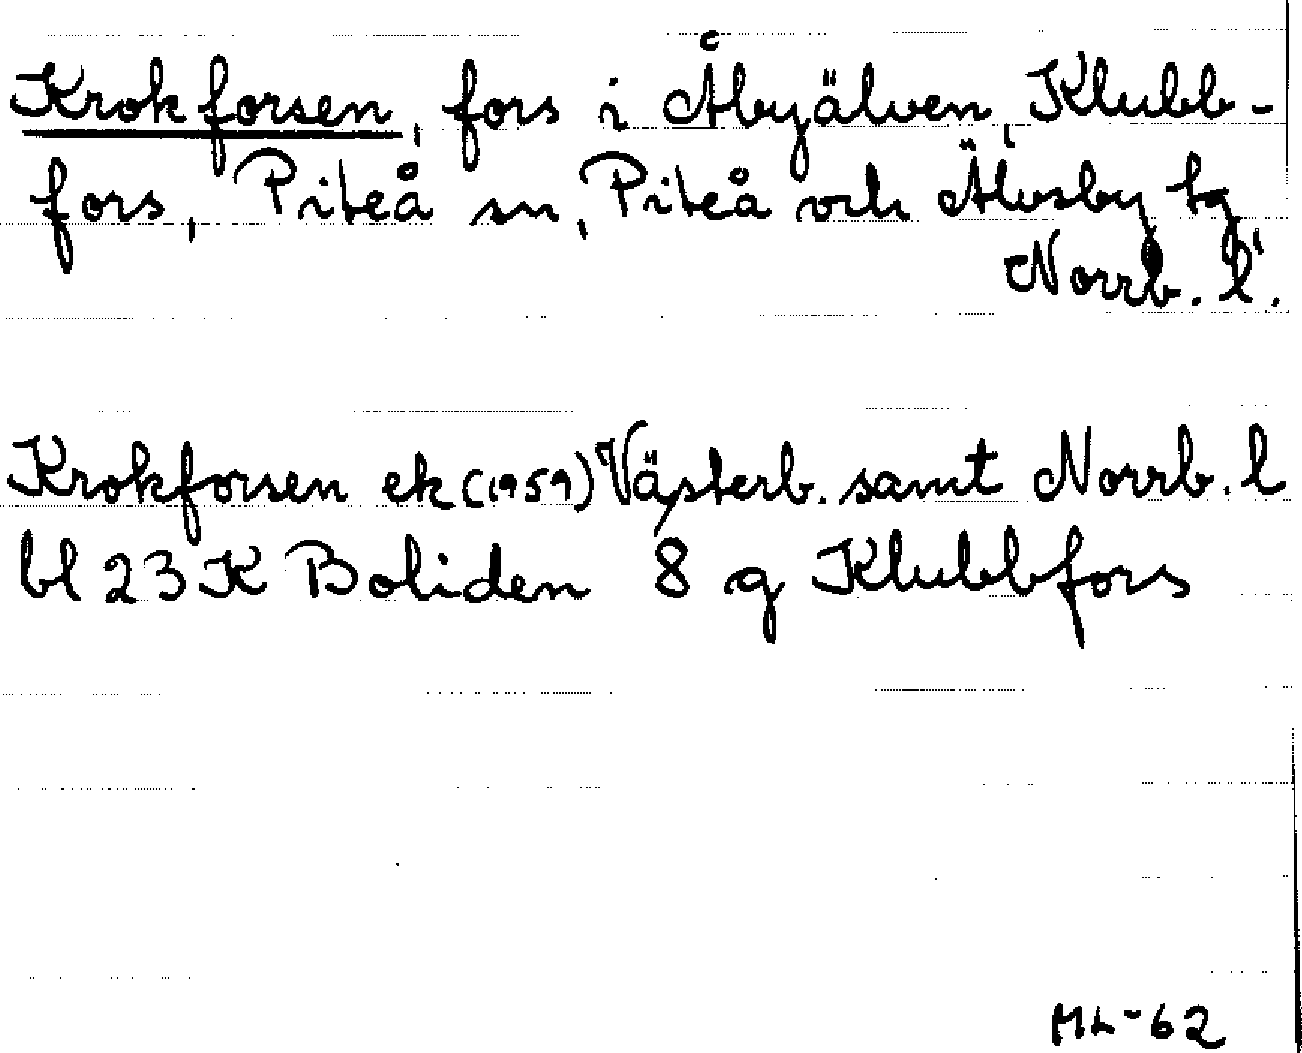 Krokforsen, fors i Åbyälven, Klubb-
fors, Piteå sn, Piteå och Älvsby tg,
Norrb. l.
Krokforsen ek (1959) Västerb. samt Norrb. l
bl 23 K Boliden 8 g Klubbfors
ML-62